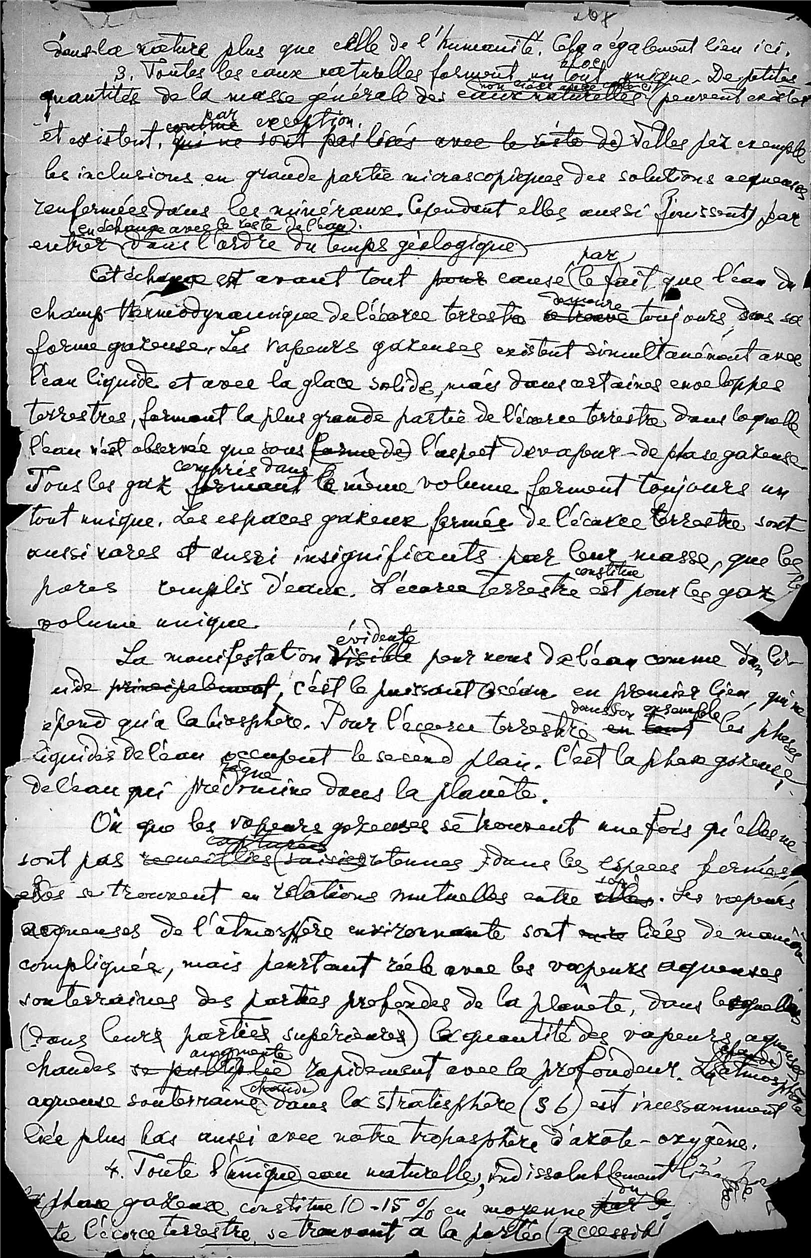 208
dans la nature plus que celle de l'humanité. Cela a également lieu ici.
bloc
3. Toutes les eaux naturelles forment un tout unique. De petites
quantités de la masse générale des eaux naturelles peuvent exister
par
et existent, comme exception, qui ne sont pas liées avec le reste de) Telles par exemple
les inclusions en grande partie microscopiques des solutions aqueuses
renfermées dans les minéraux. Cependant elles aussi finissent par
en échange avec le reste de l'eau.
entrer dans l'ordre du temps géologique
par
Cet échange est avant tout pour cause (le fait que l'eau du
demeure
champ thermodynamique de l'écorce terrestre se trouve toujours dans sa
forme gazeuse. Les vapeurs gazeuses existent simultanément avec
l'eau liquide et avec la glace solide, mais dans certaines enveloppes
terrestres, formant la plus grande partie de l'écorce terrestre dans laquelle
l'eau n'est observée que sous (forme de) l'aspect de vapeur - de phase gazeuse.
compris dans
Tous les gaz formant le même volume forment toujours un
tout unique. Les espaces gazeux fermés de l'écorce terrestre sont
aussi rares et aussi insignifiants par leur masse, que les
constitue
pores remplis d'eaux. L'écorce terrestre est pour les gaz
volume unique.
évidente
La manifestation visible pour nous de l'eau comme d'un li-
uide principalement, c'est le puissant Océan en premier lieu, qui ne
dans son ensemble
épond qu'à la biosphère. Pour l'écorce terrestre en tout les phases
liquides de l'eau occupent le second plan. C'est la phase gazeuse
règne
de l'eau qui prédomine dans la planète.
Où que les vapeurs gazeuses se trouvent une fois qu'elles ne
capturées
sont pas recueillies (saisies) retenues dans les espaces fermés,
soi
elles se trouvent en relations mutuelles entre elles. Les vapeurs
aqueuses de l'atmosphère environnante sont liées de manière
compliquée, mais pourtant réele avec les vapeurs aqueuses
souterraines des parties profondes de la planète, dans lesquelles
(dans leurs parties supérieures) la quantité des vapeurs aqueuses
augmente
chaudes se multiplie rapidement avec la profondeur. L'atmosphère
(chaude)
aqueuse souterraine dans la stratisphère (§ 6) est incessamment
liée plus bas aussi avec notre troposphère d'azote-oxygène.
4. Toute l'unique eau naturelle, indissolublement liée
la phase gazeuse constitue 10-15 % en moyenne par le
te l'écorce terrestre, se trouvant à la portée (accessib